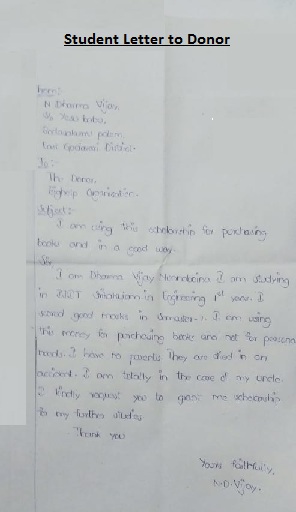 Student Letter to Donor
From:-
N. Dharma Vijay,
S/o Yesu babu,
palem,
East Godavari District.
To :-
The Donor,
Organisation.
Subject:-
I am using this scholarship for purchasing
books and in a good way.
Sir,
I am Dharma Vijay I am studying
in IIIT in Engineering 1st year. I
scored good marks in Semester-1. I am using
this money for purchasing books and not for personal
needs. I have no parents They are died in an
accident. I am totally in the care of my uncle.
I kindly request you to grant me scholarship
for my further studies
Thank you
Yours faithfully,
N.D.Vijay.